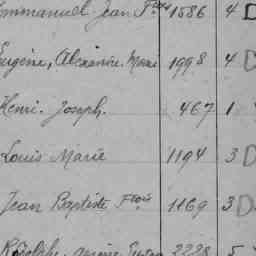 Emmanuel Jean Frois 1586 4 D
Eugène, Alexandre Marie 1998 4 D
Henri Joseph. 467 1
Louis Marie 1194 3 D
Jean Baptiste Frois 1169 3 D
2228 5